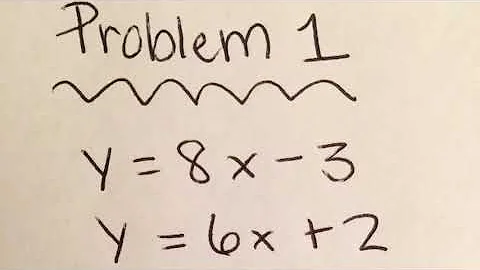 Problem 1
y = 8x - 3
y = 6x + 2